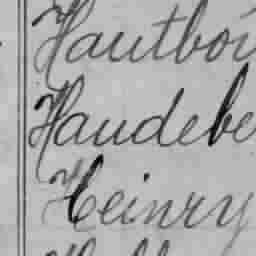 Hautboi
Haudebe
Heinry